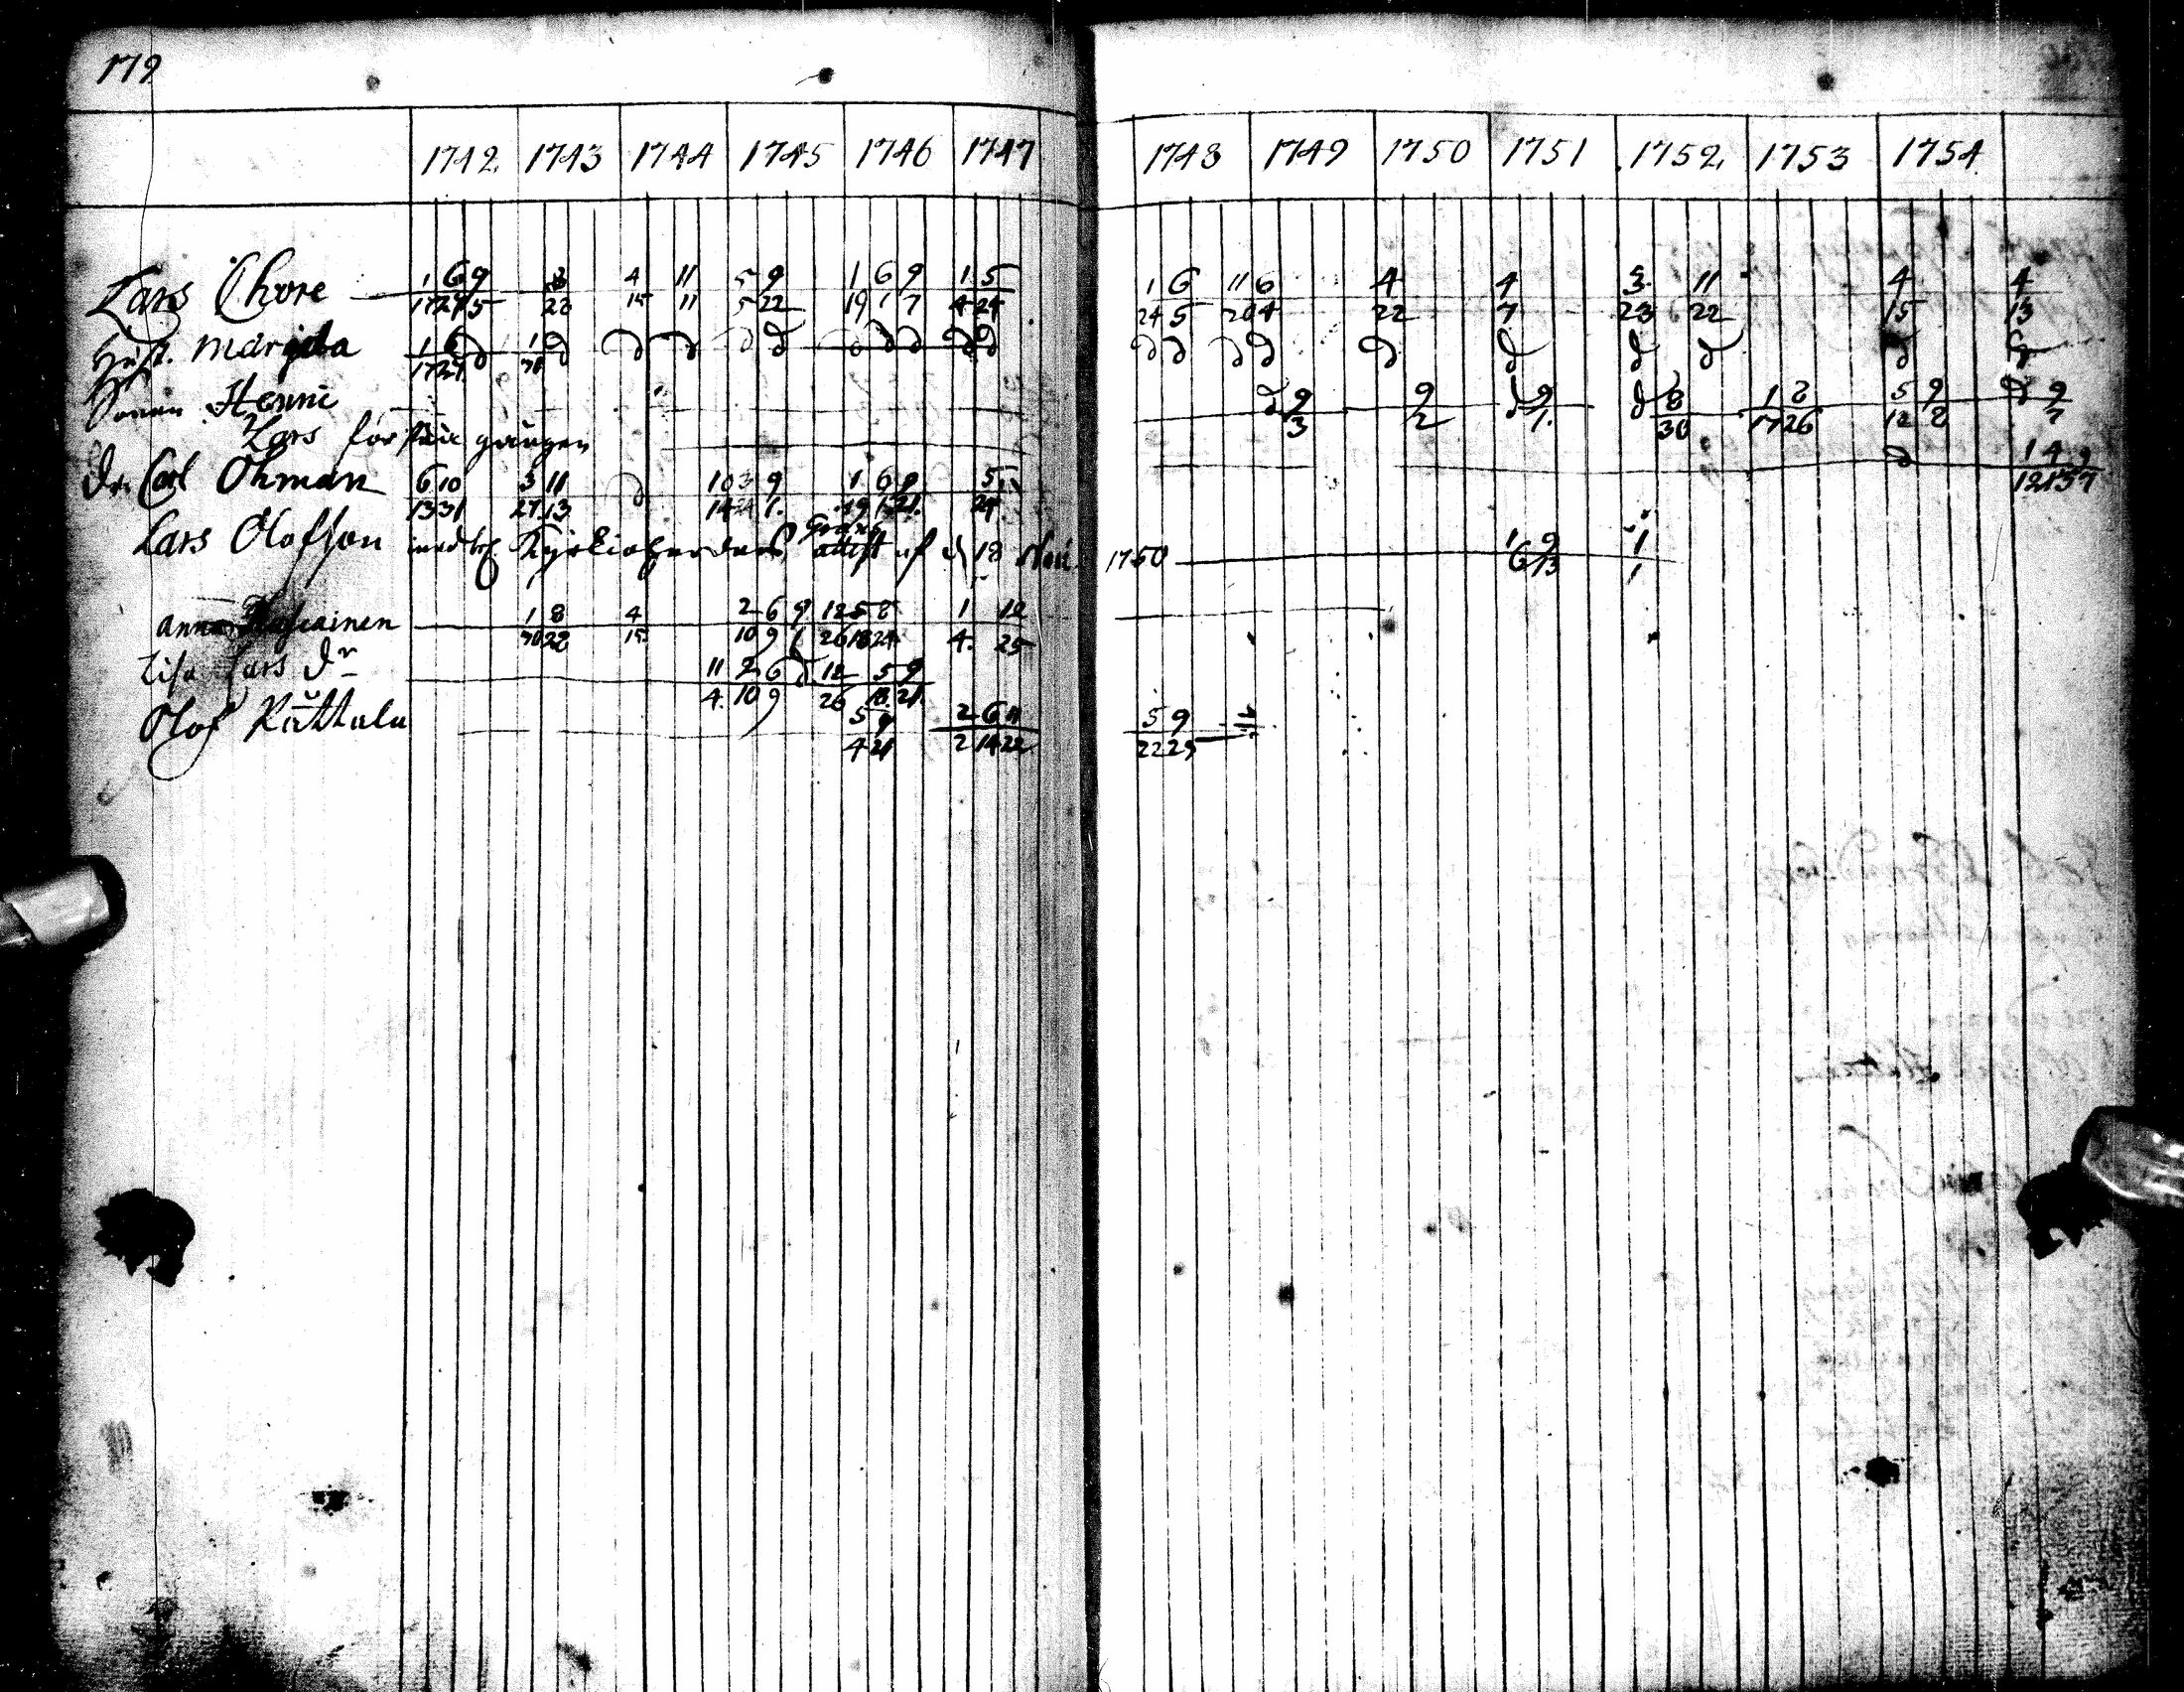 179
1742 1743 1744 1745 1746 1747 1748 1749 1750 1751 1752 1753 1754
Lars Thore 1 6 9 8 4 11 5 9 1 6 9 1 5 1 6 11 6 4 4 3 11 4 4
17 24 5 22 15 11 5 22 19 1 7 4 24 24 5 20 4 22 7 23 22 15 13
Hust. Margeta 1 6 d 1 d d d d d d d d d d d d d d d d d d d d
17 24
Sonen Henric d 9 9 d 9 d 8 1 8 5 9 d 9
3 2 1. 30 17 26 12 8 7
Lars första gången d 1 4 9
12 13 7
Dr. Carl Öhman 6 10 3 11 d 10 3 9 1 6 9 5
13 31 27 13 14 1. 19 1 21. 24
Lars Olofson med Kyrkioherdens attest af d 18 1750 1 9 1
6 13 1
Anna 1 8 4 2 6 9 12 5 8 1 12
22 15 10 9 26 18 24 4. 25
Lisa Lars dr 11 2 6 d 12 5 9
4. 10 9 26 18. 21.
Olof 5 9 2 6 11 5 9
4 21 2 14 22 22 29